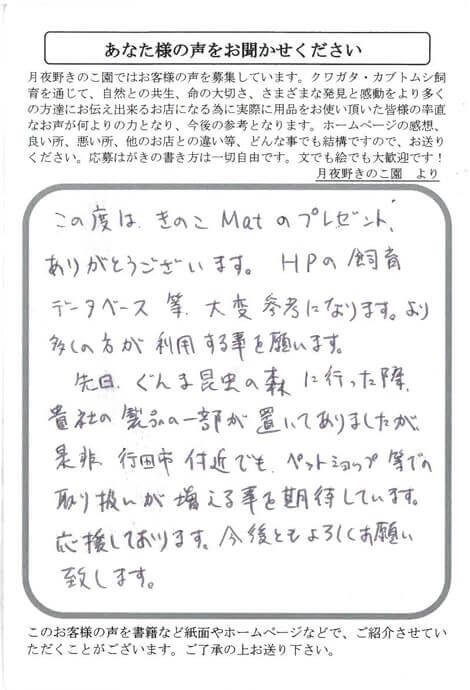 あなた様の声をお聞かせください
月夜野きのこ園ではお客様の声を募集しています。クワガタ・カブトムシ飼
育を通じて、自然との共生、命の大切さ、さまざまな発見と感動をより多く
の方達にお伝え出来るお店になる為に実際に用品をお使い頂いた皆様の率直
なお声が何よりの力となり、今後の参考となります。ホームページの感想、
良い所、悪い所、他のお店との違い等、どんな事でも結構ですので、お送り
ください。応募はがきの書き方は一切自由です。文でも絵でも大歓迎です！
月夜野きのこ園　より
この度は、きのこMatのプレゼント、
ありがとうございます。HPの飼育
データベース等、大変参考になります。より
多くの方が利用する事を願います。
先日、ぐんま昆虫の森に行った際、
貴社の製品の一部が置いてありましたが、
是非、行田市付近でも、ペットショップ等での
取り扱いが増える事を期待しています。
応援しております。今後ともよろしくお願い
致します。
このお客様の声を書籍など紙面やホームページなどで、ご紹介させてい
ただくことがございます。ご了承の上お送り下さい。